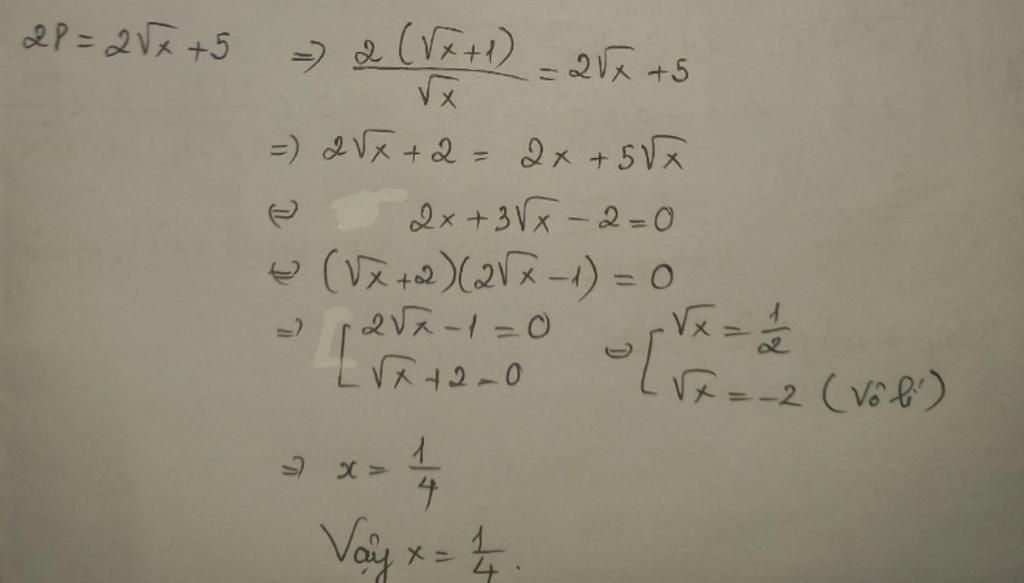 2P = 2√x + 5 => 2(√x+1)/√x = 2√x + 5
=) 2√x + 2 = 2x + 5√x
<=> 2x + 3√x - 2 = 0
<=> (√x+2)(2√x-1) = 0
=> [ 2√x - 1 = 0 <=> [ √x = 1/2
√x + 2 = 0 √x = -2 (Vô lí)
=> x = 1/4
Vậy x = 1/4.